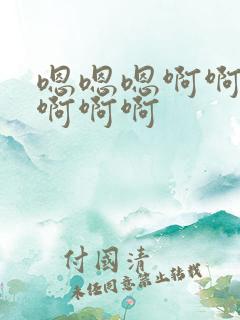 嗯嗯嗯啊啊
啊啊啊
付国清
未经同意禁止转载